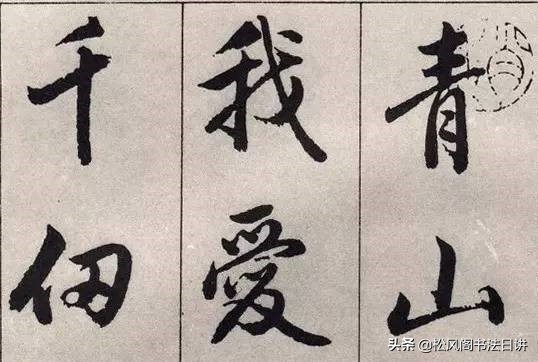 青山
我愛
千仞
头条 @松风阁书法日讲